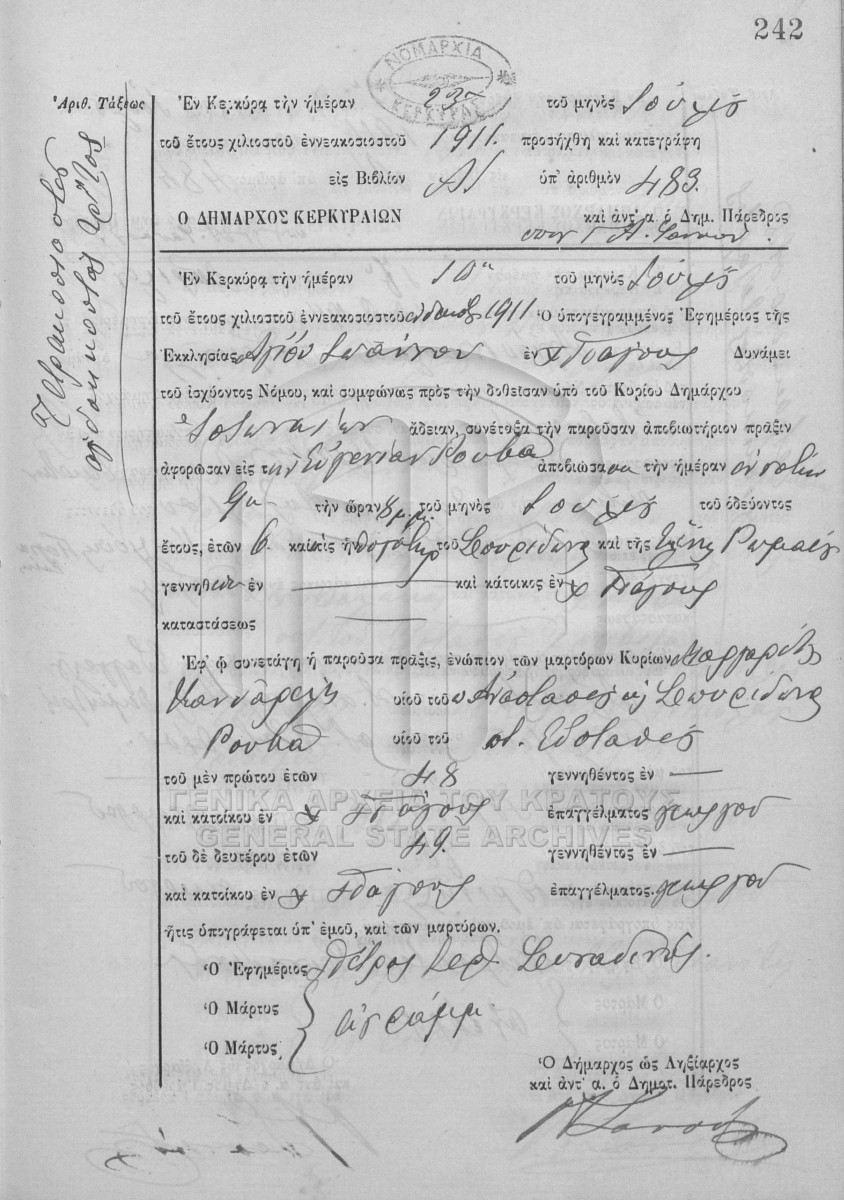 242
ΝΟΜΑΡΧΙΑ
ΚΕΡΚΥΡΑΣ
Ἀριθ. Τάξεως
Τετρακοσιοστὸς
ὀγδοηκοστὸς τρίτος
Ἐν Κερκύρᾳ τὴν ἡμέραν 23 τοῦ μηνὸς Ἰουλίου
τοῦ ἔτους χιλιοστοῦ ἐννεακοσιοστοῦ 1911. προσήχθη καὶ κατεγράφη
εἰς Βιβλίον Α/ ὑπ' ἀριθμὸν 483.
Ο ΔΗΜΑΡΧΟΣ ΚΕΡΚΥΡΑΙΩΝ καὶ ἀντ' α. ὁ Δημ. Πάρεδρος
Ἐν Κερκύρᾳ τὴν ἡμέραν 10η τοῦ μηνὸς Ἰουλίου
τοῦ ἔτους χιλιοστοῦ ἐννεακοσιοστοῦ 1911 Ὁ ὑπογεγραμμένος Ἐφημέριος τῆς
Ἐκκλησίας Ἁγίου Ἰωάννου ἐν χ Πάγους Δυνάμει
τοῦ ἰσχύοντος Νόμου, καὶ συμφώνως πρὸς τὴν δοθεῖσαν ὑπὸ τοῦ Κυρίου Δημάρχου
ἄδειαν, συνέταξα τὴν παροῦσαν ἀποβιωτήριον πρᾶξιν
ἀφορῶσαν εἰς τὴν Εὐγενίαν Ρουβᾶ ἀποβιώσασα τὴν ἡμέραν
9η τὴν ὥραν 8 μ.μ. τοῦ μηνὸς Ἰουλίου τοῦ ὁδεύοντος
ἔτους, ἐτῶν 6 καὶ τὶς ἦν θυγάτηρ τοῦ Σπυρίδωνος καὶ τῆς Ἑλένης
γεννηθεῖσα ἐν — καὶ κάτοικος ἐν χ Πάγους
καταστάσεως —
Ἐφ' ᾧ συνετάγη ἡ παροῦσα πρᾶξις, ἐνώπιον τῶν μαρτύρων Κυρίων Μαργαρίτη
Κανδαρέλη υἱοῦ τοῦ Ἀναστασίου κ Σπυρίδωνα
Ρουβᾶ υἱοῦ τοῦ Εὐσταθίου
τοῦ μὲν πρώτου ἐτῶν 48 γεννηθέντος ἐν —
καὶ κατοίκου ἐν χ Πάγους ἐπαγγέλματος γεωργοῦ
ΓΕΝΙΚΑ ΑΡΧΕΙΑ ΤΟΥ ΚΡΑΤΟΥΣ
GENERAL STATE ARCHIVES
τοῦ δὲ δευτέρου ἐτῶν 49. γεννηθέντος ἐν —
καὶ κατοίκου ἐν χ Πάγους ἐπαγγέλματος γεωργοῦ
ἥτις ὑπογράφεται ὑπ' ἐμοῦ, καὶ τῶν μαρτύρων.
Ὁ Ἐφημέριος Πέτρος Ἱερ.
Ὁ Μάρτυς
ἀγράμμ.
Ὁ Μάρτυς
Ὁ Δήμαρχος ὡς Ληξίαρχος
καὶ ἀντ' α. ὁ Δημοτ. Πάρεδρος